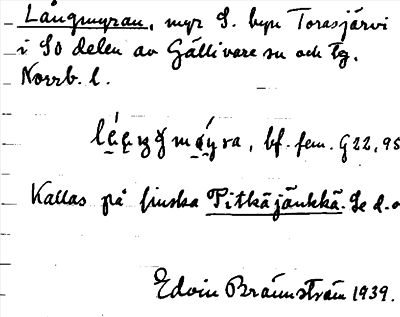 Långmyran, myr S. byn Torasjärvi
i SO delen av Gällivare sn och tg.
Norrb. l.
bf. fem. G22,95
Kallas på finska Pitkäjänkkä. Se d.o
Edvin Brännström 1939.